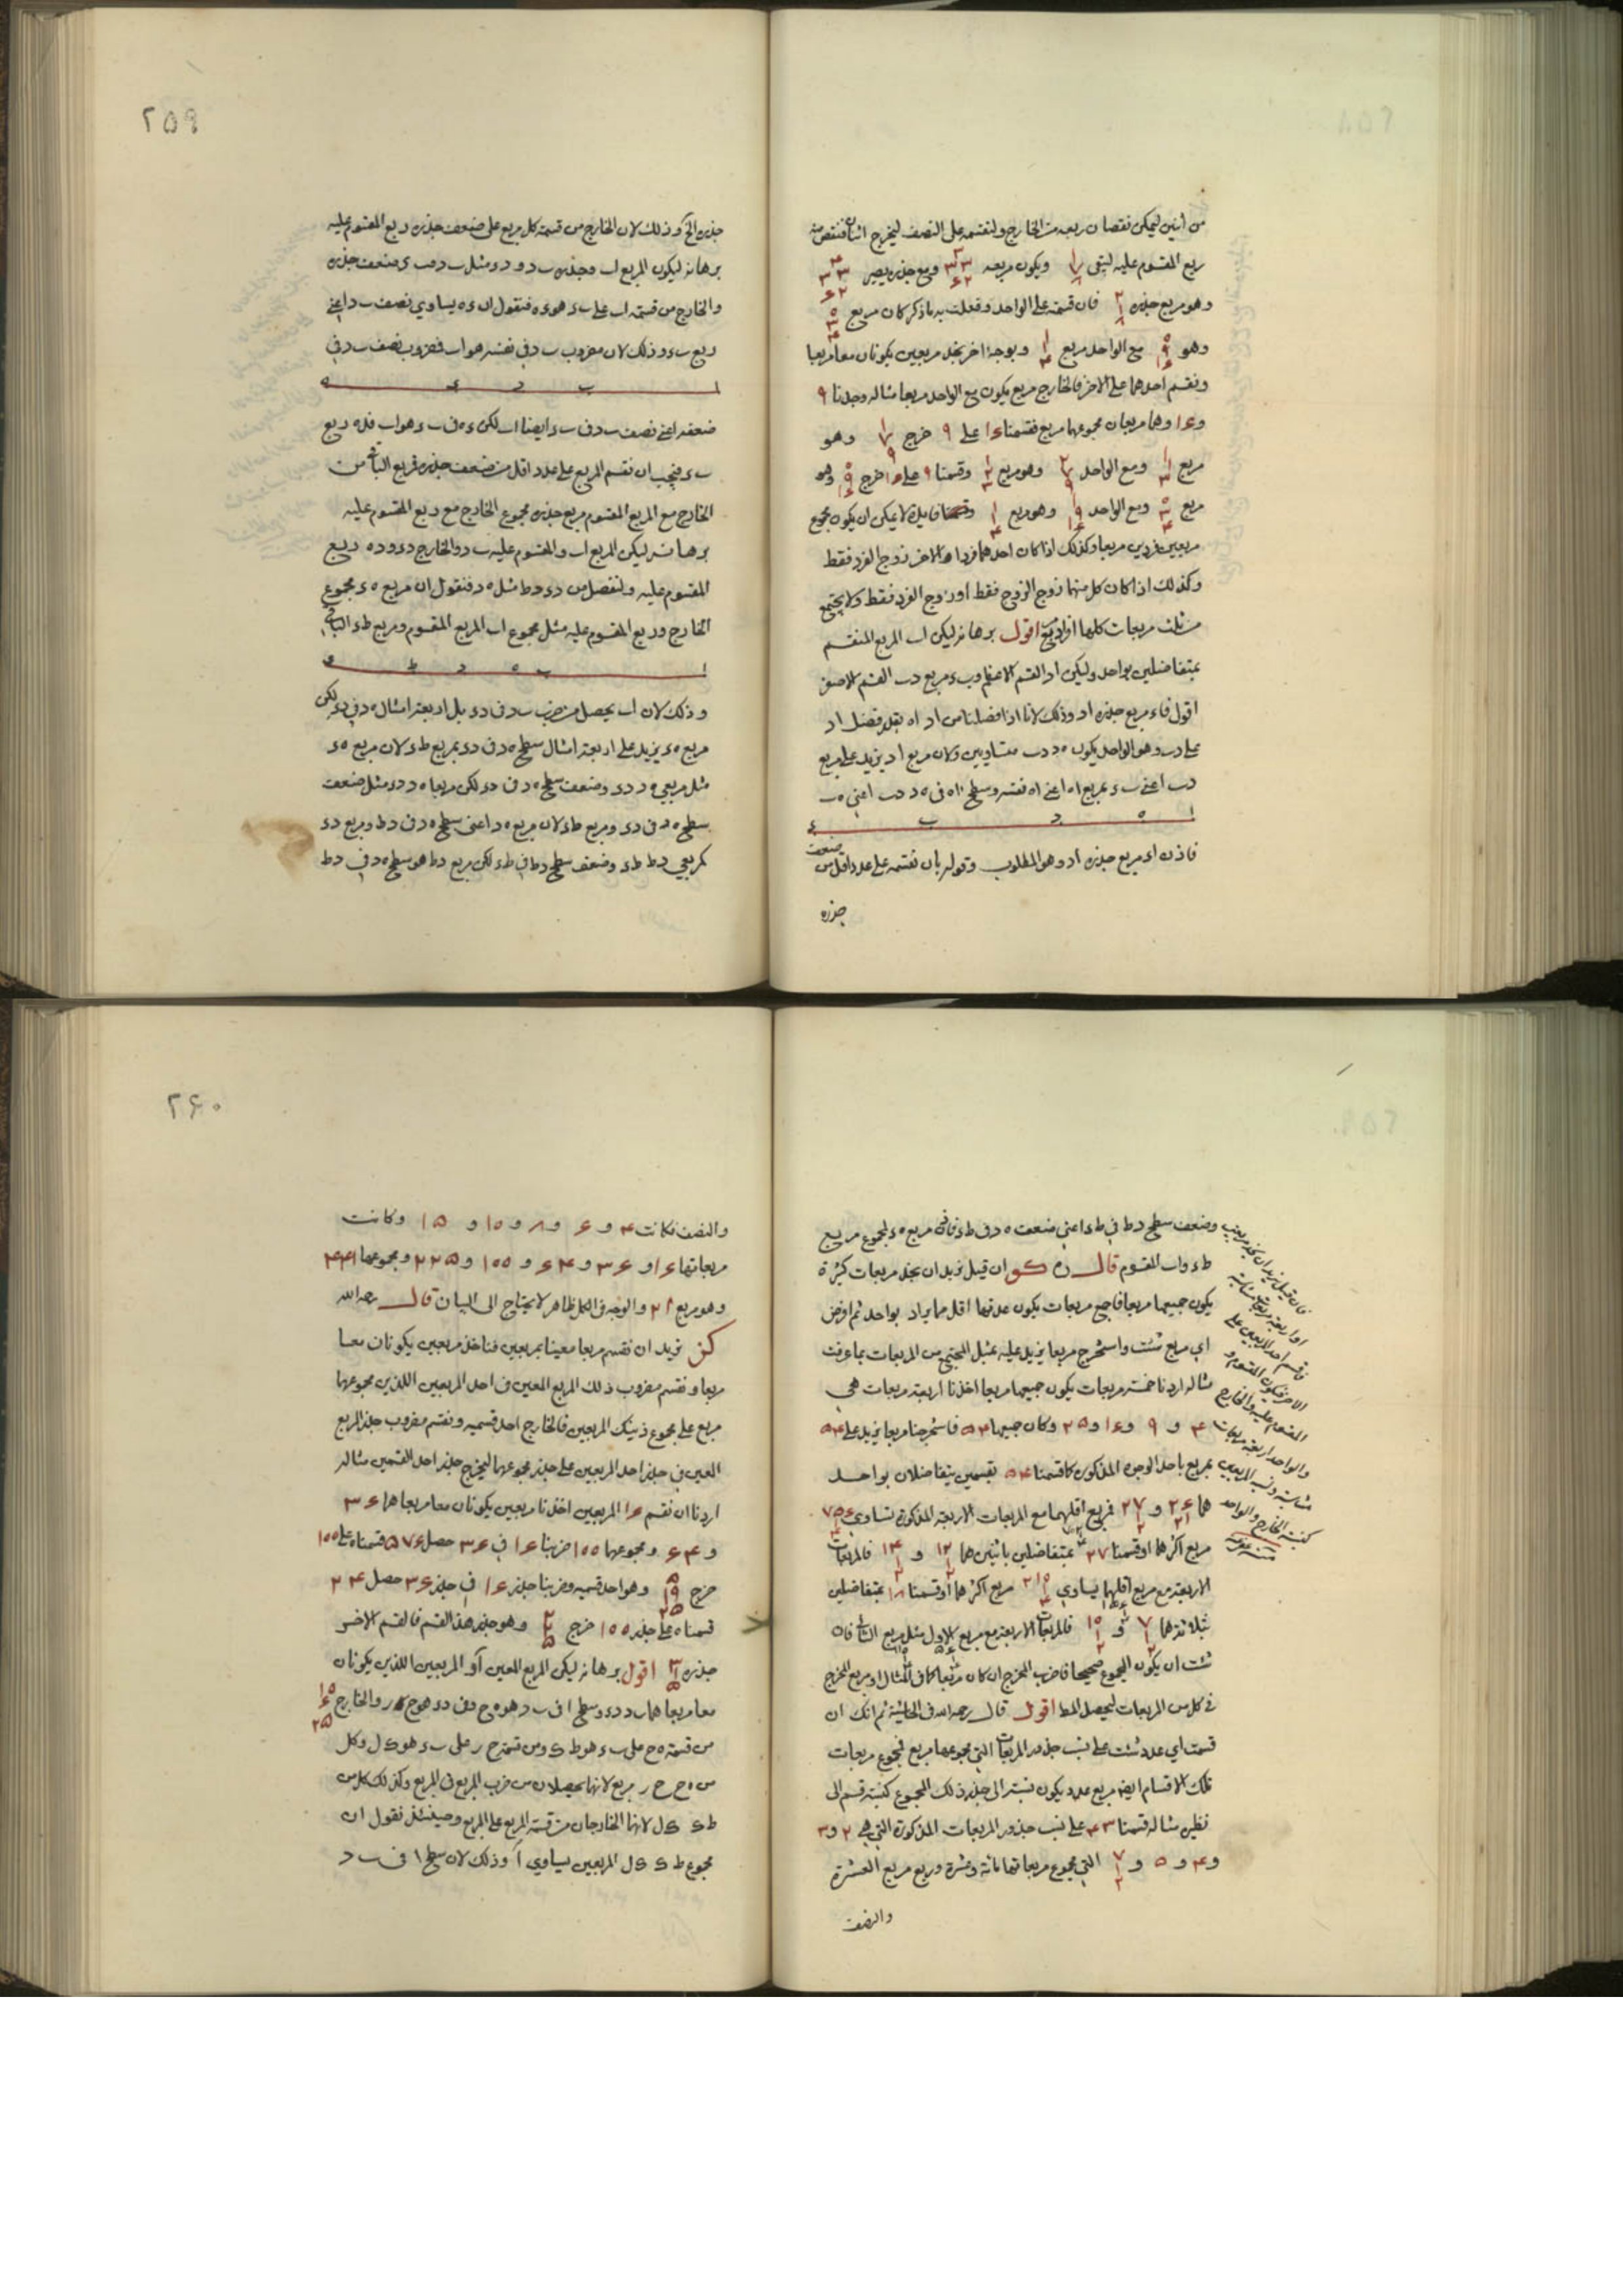 من اثنين ليمكن نقصان ربعه من الخارج ولنقسمه على النصف ليخرج
ربع المقسوم عليه ليبقى ويكون مربعه ومع جذره يصير
وهو مربع جذره فان قسمته على الواحد وفعلت به ما ذكر كان مربع
وهو مع الواحد مربع وبوجه اخر نجد مربعين يكونان معا مربعا
ونقسم احدهما على الاخر فالخارج مربع يكون مع الواحد مربعا مثاله وجدنا ۹
و ۱۶ وهما مربعان مجموعهما مربع فقسمنا ۱۶ على ۹ خرج وهو
مربع ومع الواحد وهو مربع وقسمنا ۹ على ۱۶ خرج وهو
مربع ومع الواحد وهو مربع لا يمكن ان يكون مجموع
مربعين فردين مربعا وكذلك اذا كان احدهما فردا والاخر زوج الفرد فقط
وكذلك اذا كان كل منهما زوج الزوج فقط او زوج الفرد فقط ولا يجتمع
من ثلث مربعات كلها افراد مربع اقول برهانه ليكن اب المربع المنقسم
بمتفاضلين بواحد وليكن اد القسم الاعظم و ب ء مربع دب القسم الاصغر
اقول فاء مربع جذره اد وذلك لانا اذا فصلنا من اد اه بقدر فضل اد
على دب وهو الواحد يكون ه د دب متساويين ولان مربع اد يزيد على مربع
دب اعني ب ء بمربع اه اعني اه نفسه وسطح اه فى ه د دب اعني ه ب
ا ه د ب ء
فاذن اء مربع جذره اد وهو المطلوب وقوله بان نقسمه على عدد اقل من ضعف
جذره
۲۵۹
جذره الخ وذلك لان الخارج من قسمة كل مربع على ضعف جذره ربع المقسوم عليه
برهانه ليكون المربع اب وجذره ب د و د ء مثل ب د فب ء ضعف جذره
والخارج من قسمة اب على ب ء هو ء ه فنقول ان ء ه يساوي نصف ب د اعني
ربع ب ء وذلك لان مضروب ب د في نفسه هو اب فمضروب نصف ب د في
ا ب د ء ه
ضعفه اعني نصف ب د في ب ء ايضا اب لكن ء ه في ب ء هو اب فله ربع
ب ء ويجب ان نقسم المربع على عدد اقل من ضعف جذره فمربع الباقي من
الخارج مع المربع المقسوم مربع جذره مجموع الخارج مع ربع المقسوم عليه
برهانه ليكن المربع اب والمقسوم عليه ب د والخارج د ء و د ه ربع
المقسوم عليه ولنفصل من د ء د ط مثل ه د فنقول ان مربع ه ء مجموع
الخارج وربع المقسوم عليه مثل مجموع اب المربع المقسوم ومربع ط ء الباقي
ا ب ه د ط ء
وذلك لان اب يحصل من ضرب ب د في د ء بل اربعة امثال ه د في د ء لكن
مربع ه ء يزيد على اربعة امثال سطح ه د في د ء بمربع ط ء لان مربع ه ء
مثل مربعي ه د د ء وضعف سطح ه د في د ء لكن مربعا ه د د ء مثل ضعف
سطح ه د في د ء ومربع ط ء لان مربع ه د اعني سطح ه د في د ط ومربع د ء
كمربعي د ط ط ء وضعف سطح د ط في ط ء لكن مربع د ط هو سطح ه د في د ط
وضعف سطح د ط في ط ء اعني ضعف ه د في ط ء فاذن مربع ه ء لمجموع مربع
ط ء و اب المقسوم قال ره كو ان قيل نريد ان نجد مربعات كثيرة
يكون جميعها مربعا فاجمع مربعات يكون عدتها اقل مما يراد بواحد ثم افرض
اي مربع شئت واستخرج مربعا يزيد عليه بمثل المجتمع من المربعات بما عرفت
مثاله اردنا خمسة مربعات يكون جميعها مربعا اخذنا اربعة مربعات هي
۴ و ۹ و ۱۶ و ۲۵ وكان جميعها ۵۴ فاستخرجنا مربعا يزيد على ۵۴
بمربع باحد الوجوه المذكورة كما قسمنا ۵۴ بقسمين يتفاضلان بواحد
هما و فمربع اقلهما مع المربعات الاربعة المذكورة تساوي
مربع اكثرهما او قسمنا ۲۷ بمتفاضلين باثنين هما و فالمربعات
الاربعة مع مربع اقلهما يساوي مربع اكثرهما او قسمنا ۱۸ بمتفاضلين
بثلثة هما و فالمربعات الاربعة مع مربع الاول مثل مربع الثاني فان
شئت ان يكون المجموع صحيحا فاضرب المخرج ان كان مربعا كما في المثال او مربع المخرج
في كل من المربعات ليحصل المط اقول قال رحمه الله في الحاشية ثم انك ان
قسمت اي عدد شئت على نسب جذور المربعات التي مجموعها مربع فمجموع مربعات
تلك الاقسام ايضا مربع عدد يكون نسبته الى جذر ذلك المجموع كنسبة قسم الى
نظيره مثاله قسمنا ۴۳ على نسب جذور المربعات المذكورة التي هي ۲ و ۳
و ۴ و ۵ و التي مجموع مربعاتها مائة وعشرة وربع مربع العشرة
والنصف
فان قيل نريد ان نجد مربعين
او اربعة مربعات متناسبة
فاقسم احد المربعين على
الاخر فيكون المقسوم و
المقسوم عليه والخارج
والواحد اربعة مربعات
متناسبة ونسب المربعين
كنسبة الخارج والواحد
۲۶۰
والنصف فكانت ۴ و ۶ و ۸ و ۱۰ و ۱۵ وكانت
مربعاتها ۱۶ و ۳۶ و ۶۴ و ۱۰۰ و ۲۲۵ ومجموعها ۴۴۱
وهو مربع ۲۱ والوجه فى الكل ظاهر لا يحتاج الى البيان قال رحمه الله
كز نريد ان نقسم مربعا معينا بمربعين فناخذ مربعين يكونان معا
مربعا ونقسم مضروب ذلك المربع المعين فى احد المربعين اللذين مجموعهما
مربع على مجموع ذينك المربعين فالخارج احد قسميه ونقسم مضروب جذر المربع
المعين في جذر احد المربعين على جذر مجموعهما ليخرج جذر احد القسمين مثاله
اردنا ان نقسم ۱۶ المربعين اخذنا مربعين يكونان معا مربعا هما ۳۶
و ۶۴ ومجموعهما ۱۰۰ ضربنا ۱۶ في ۳۶ حصل ۵۷۶ قسمناه على ۱۰۰
خرج وهو احد قسميه وضربنا جذر ۱۶ في جذر ۳۶ حصل ۲۴
قسمناه على جذر ۱۰۰ خرج وهو جذر هذا القسم فالقسم الاخر
جذره اقول برهانه ليكن المربع المعين آ و المربعين اللذين يكونان
معا مربعا هما ب د د ء وسطح ا في ب د هو ه ح وفى د ء هو ح ر والخارج
من قسمة ه ح على ب ء هو ط ك ومن قسمة ح ر على ب ء هو ك ل وكل
من ه ح ح ر مربع لانهما يحصلان من ضرب المربع فى المربع وكذلك كل من
ط ك ك ل لانهما الخارجان من قسمة المربع على المربع وحينئذ نقول ان
مجموع ط ك ك ل المربعين يساوي آ وذلك لان سطح ا في ب د